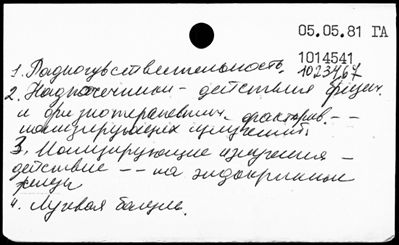 05.05.81 ГА
1014541
1. Радиочувствительность. 1023467
2. Надпочечники - действия физич.
и физиотерапевтич. факторов. --
ионизирующих излучений.
3. Ионизирующие излучения -
действие -- на эндокринные
железы
4. Лучевая болезнь.